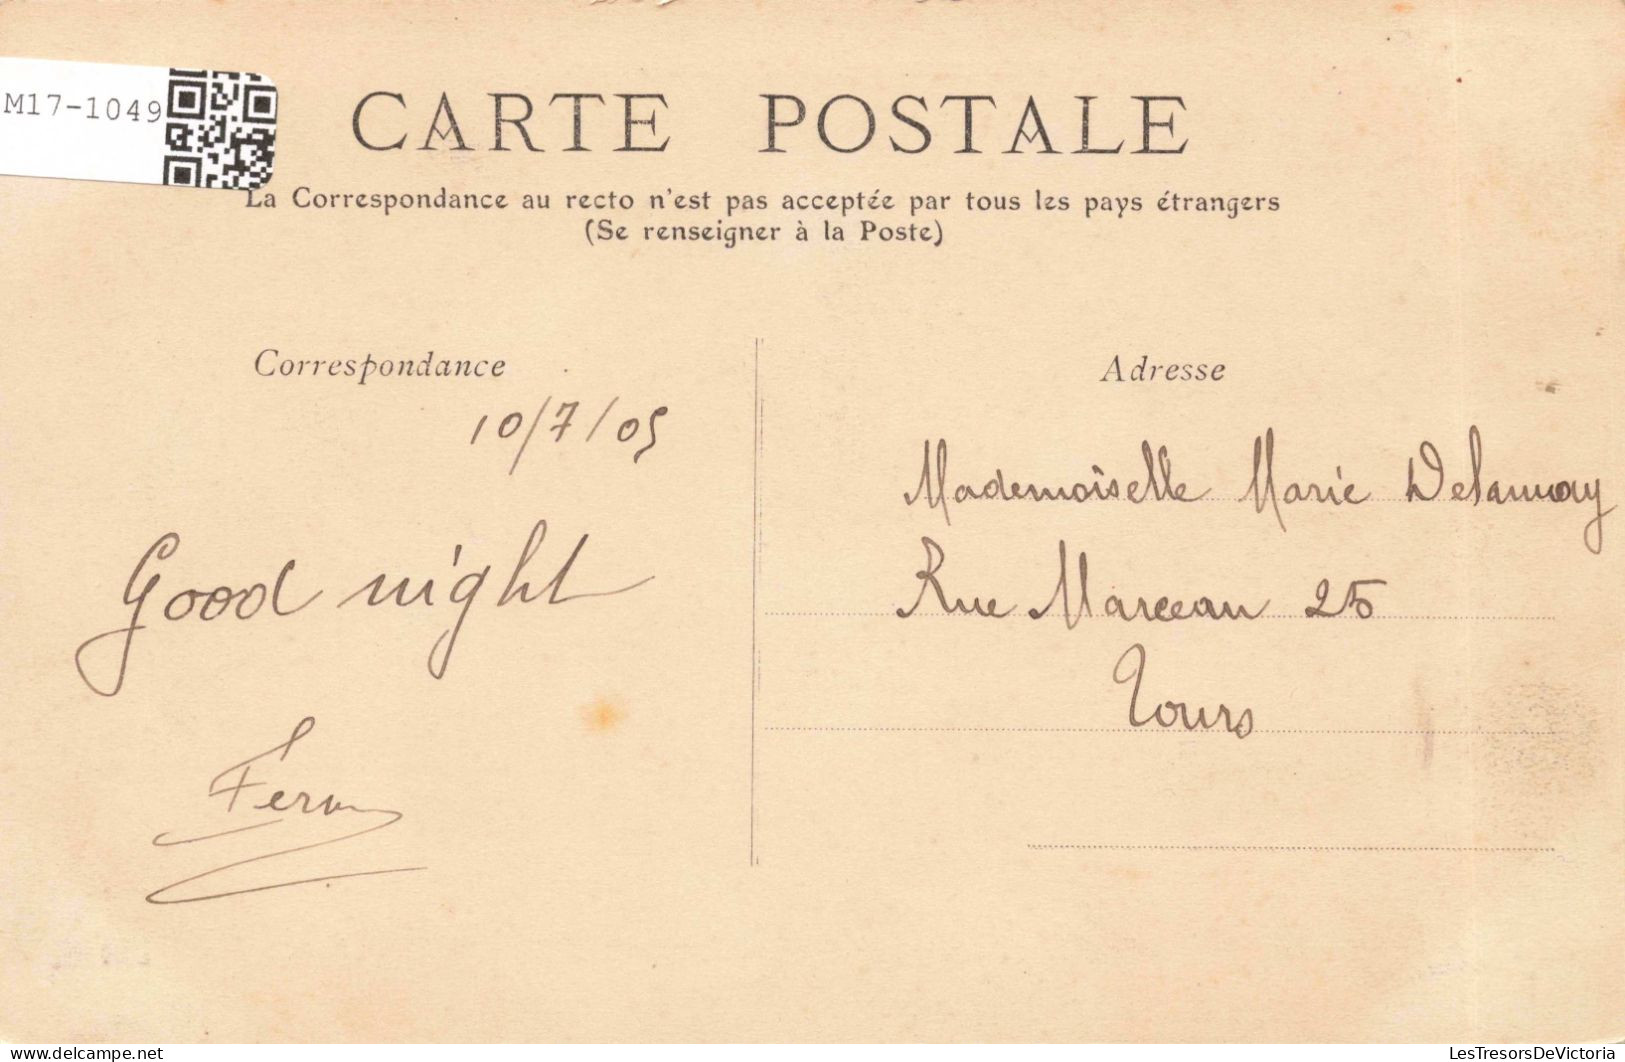 M17-1049
CARTE POSTALE
La Correspondance au recto n'est pas acceptée par tous les pays étrangers
(Se renseigner à la Poste)
Correspondance
10/7/05
Good night
Adresse
Mademoiselle Marie Delaunay
Rue Marceau 25
Tours
LesTresorsDeVictoria